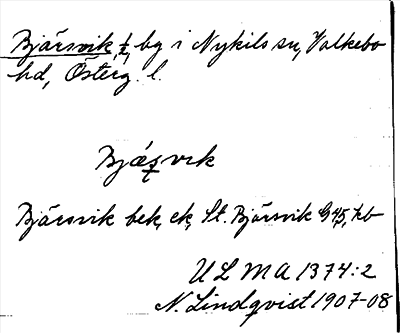 Bjärsvik, t, by i Nykils sn, Valkebo
hd, Österg. l.
Bjärsvik bek, ek, St. Bjärsvik G45, kb
ULMA 1374:2
N. Lindqvist 1907-08